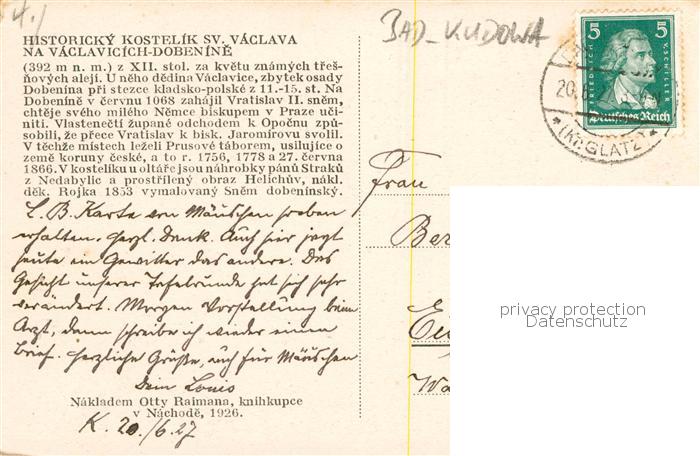 4./
BAD-KUDOWA
HISTORICKÝ KOSTELÍK SV. VÁCLAVA
NA VÁCLAVICÍCH-DOBENÍNĚ
(392 m n. m.) z XII. stol. za květu známých třeš-
ňových alejí. U něho dědina Václavice, zbytek osady
Dobenína při stezce kladsko-polské z 11.-15. st. Na
Dobeníně v červnu 1068 zahájil Vratislav II. sněm,
chtěje svého milého Němce biskupem v Praze uči-
niti. Vlastenečtí župané odchodem k Opočnu způ-
sobili, že přece Vratislav k bisk. Jaromírovu svolil.
V těchže místech leželi Prusové táborem, usilujíce o
země koruny české, a to r. 1756, 1778 a 27. června
1866. V kostelíku u oltáře jsou náhrobky pánů Straků
z Nedabylic a prostřílený obraz Helichův, nákl.
děk. Rojka 1853 vymalovaný Sněm dobenínský.
L. B. Karte von Mäuschen soeben
erhalten. Herzl. Dank. Auch hier jagt
heute ein Gewitter das andere. Das
Gesicht unserer Tafelrunde hat sich sehr
verändert. Morgen Vorstellung beim
Arzt, dann schreibe ich wieder einen
Brief. Herzliche Grüße, auch für Mäuschen
Dein Louis
Nákladem Otty Raimana, knihkupce
v Náchodě, 1926.
K. 20./6.27
5 5
FRIEDRICH V. SCHILLER
Deutsches Reich
20.
* (Kr. GLATZ) *
Frau
Ber
privacy protection
Datenschutz